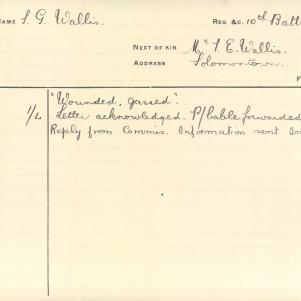 NAME S. G. Wallis. REG. &C. 10th Batt
NEXT OF KIN Mrs S. E. Wallis.
ADDRESS Solomontown.
F
"Wounded, gassed".
1/4 Letter acknowledged. P/bable forwarded
Reply from Commis. Information sent In